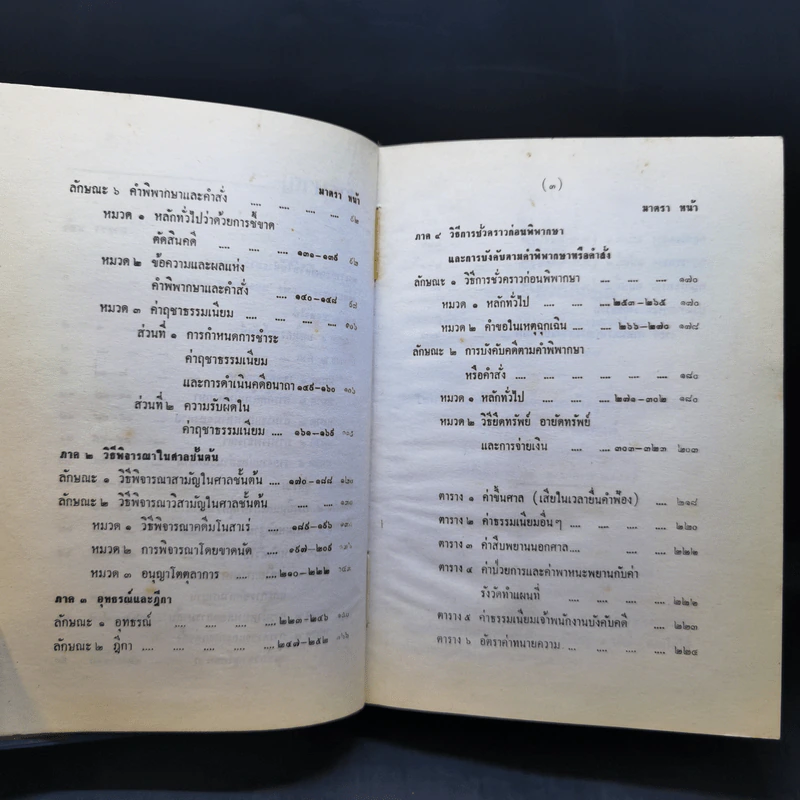 มาตรา หน้า
ลักษณะ ๖ คำพิพากษาและคำสั่ง .... .... .... .... ๙๒
หมวด ๑ หลักทั่วไปว่าด้วยการชี้ขาด
ตัดสินคดี .... .... ๑๓๑-๑๓๙ ๙๒
หมวด ๒ ข้อความและผลแห่ง
คำพิพากษาและคำสั่ง .... ๑๔๐-๑๔๘ ๙๘
หมวด ๓ ค่าฤชาธรรมเนียม .... .... .... ๑๐๖
ส่วนที่ ๑ การกำหนดการชำระ
ค่าฤชาธรรมเนียม
และการดำเนินคดีอนาถา ๑๔๙-๑๖๐ ๑๐๖
ส่วนที่ ๒ ความรับผิดใน
ค่าฤชาธรรมเนียม .... ๑๖๑-๑๖๙
ภาค ๒ วิธีพิจารณาในศาลชั้นต้น
ลักษณะ ๑ วิธีพิจารณาสามัญในศาลชั้นต้น ๑๗๐-๑๘๘ ๑๒๐
ลักษณะ ๒ วิธีพิจารณาวิสามัญในศาลชั้นต้น .... ....
หมวด ๑ วิธีพิจารณาคดีมโนสาเร่ .... ๑๘๙-๑๙๖
หมวด ๒ การพิจารณาโดยขาดนัด .... ๑๙๗-๒๐๙
หมวด ๓ อนุญาโตตุลาการ .... ๒๑๐-๒๒๒
ภาค ๓ อุทธรณ์และฎีกา
ลักษณะ ๑ อุทธรณ์ .... .... .... ๒๒๓-๒๔๖
ลักษณะ ๒ ฎีกา .... .... .... .... ๒๔๗-๒๕๒
(๓)
มาตรา หน้า
ภาค ๔ วิธีการชั่วคราวก่อนพิพากษา
และการบังคับตามคำพิพากษาหรือคำสั่ง
ลักษณะ ๑ วิธีการชั่วคราวก่อนพิพากษา .... .... ๑๗๐
หมวด ๑ หลักทั่วไป .... .... ๒๕๓-๒๖๕ ๑๗๐
หมวด ๒ คำขอในเหตุฉุกเฉิน .... ๒๖๖-๒๗๐ ๑๗๘
ลักษณะ ๒ การบังคับคดีตามคำพิพากษา
หรือคำสั่ง .... .... .... .... ๑๘๐
หมวด ๑ หลักทั่วไป .... .... ๒๗๑-๓๐๒ ๑๘๐
หมวด ๒ วิธียึดทรัพย์ อายัดทรัพย์
และการจ่ายเงิน .... ๓๐๓-๓๒๓ ๒๐๓
ตาราง ๑ ค่าขึ้นศาล (เสียในเวลายื่นคำฟ้อง) .... ๒๑๘
ตาราง ๒ ค่าธรรมเนียมอื่นๆ .... .... .... ๒๒๐
ตาราง ๓ ค่าสืบพยานนอกศาล.... .... .... ๒๒๒
ตาราง ๔ ค่าป่วยการและค่าพาหนะพยานกับค่า
รังวัดทำแผนที่ .... .... .... ๒๒๒
ตาราง ๕ ค่าธรรมเนียมเจ้าพนักงานบังคับคดี .... ๒๒๓
ตาราง ๖ อัตราค่าทนายความ .... .... .... ๒๒๔